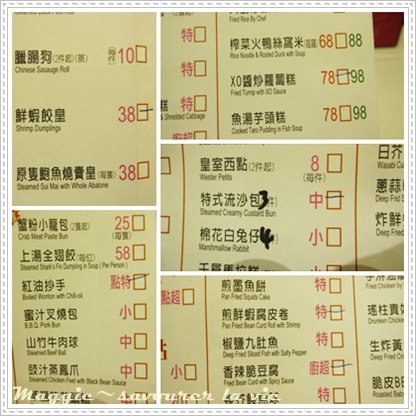 臘腸狗(2件起)(蒸) (每件)10
Chinese Sausage Roll
鮮蝦餃皇 38
Shrimp Dumplings
原隻鮑魚燒賣皇(每隻)38
Steamed Sui Mai with Whole Abalone
特
特
特
& Shredded Cabbage
廚超
Fried Rice By Chef
榨菜火鴨絲窩米(每窩) 68 88
Rice Noodle & Rosted Duck with Soup
XO醬炒蘿蔔糕 78 98
Fried Turnip with XO Sauce
魚湯芋頭糕 78 98
Cooked Taro Pudding in Fish Soup
皇室西點(2件起) 8(每件)
Wester Petits
特式流沙包 3件 中
Steamed Creamy Custard Bun
棉花白兔仔 4 小
Marshmallow Rabbit
日芥
Wasabi Cu
蔥蒜
Deep Fried S
Deep Fri
蟹粉小籠包(2隻起) 25(每隻)
Crab Meat Paste Bun
上湯全翅餃(每位) 58
Steamed Shark's Fin Dumpling in Soup ( Per Person )
紅油抄手 點特
Boiled Wonton with Chili-oil
蜜汁叉燒包 小
B.B.Q. Pork Bun
山竹牛肉球 中
Steamed Beef Ball
豉汁蒸鳳爪 中
Steamed Chicken Feet with Black Bean Sauce
點超
特
特
煎墨魚餅 特
Pan Fried Squids Cake
煎鮮蝦腐皮卷 特
Pan Fried Bean Curd Roll with Shrimp
椒鹽九肚魚 特
Deep Fried Sliced Fish with Salty Pepper
香辣脆豆腐 廚超
Spicy Fried Bean Curd
瑤柱貴妃
Drunken Chicken
生炸黃
Deep Fried
脆皮B
Maggie~savourer la vie